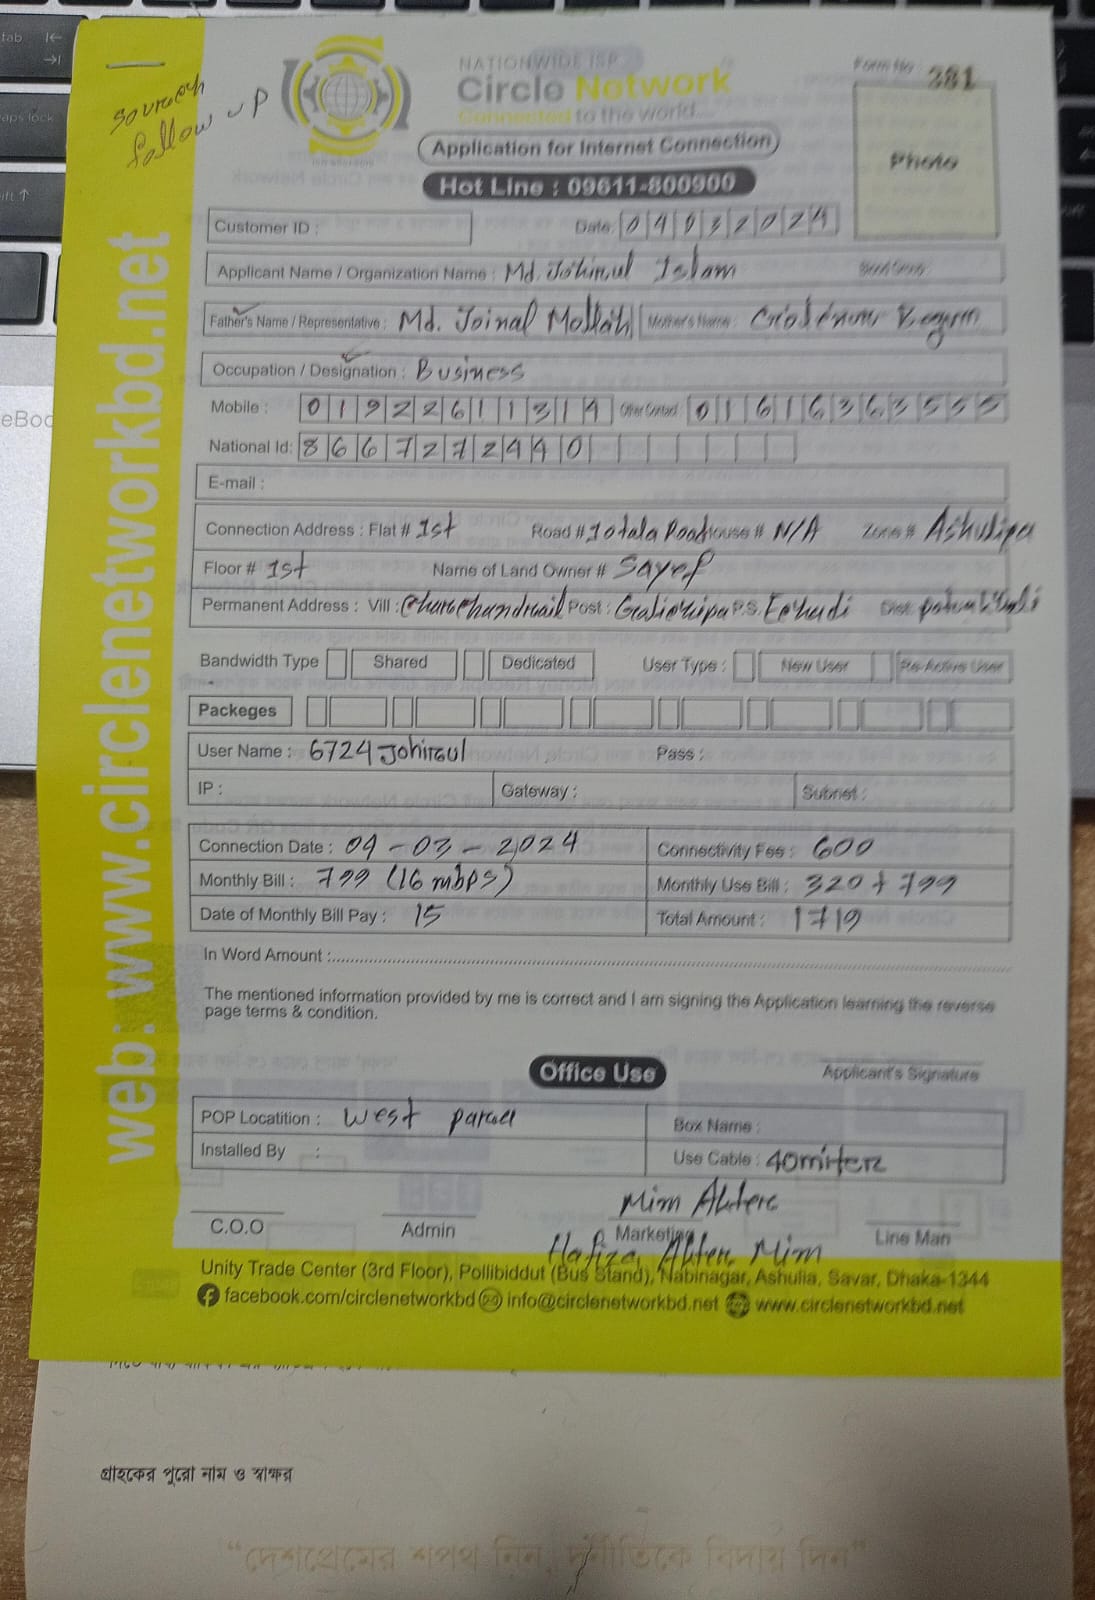 tab
caps lock
sourcesh
follow up
NATIONWIDE ISP
Circle Network
Connected to the world....
Form No 381
Photo
Application for Internet Connection
Hot Line : 09611-800900
Customer ID : Date: 04032024
Applicant Name / Organization Name : Md. Johirul Islam
Father's Name / Representative : Md. Joinal Mollah Mother's Name : Begum
Occupation / Designation : Business
Mobile : 01922611314 Other Contact 01616363555
National Id: 8667272440
E-mail :
Connection Address : Flat # 1st Road # 10tala Road House # N/A Zone # Ashuliya
Floor # 1st Name of Land Owner # Sayef
Permanent Address : Vill : Post : P.S. Dist:
Bandwidth Type Shared Dedicated User Type : New User Re-Active User
Packeges
User Name : 6724Johirul Pass :
IP : Gateway : Subnet :
Connection Date : 04-03-2024 Connectivity Fee : 600
Monthly Bill : 799 (16 mbps) Monthly Use Bill : 320 + 799
Date of Monthly Bill Pay : 15 Total Amount : 1719
In Word Amount :
The mentioned information provided by me is correct and I am signing the Application learning the reverse
page terms & condition.
Office Use Applicant's Signature
POP Locatition : West Parcel Box Name :
Installed By : Use Cable : 40miter
Mim Akter
C.O.O Admin Marketing Line Man
Hafiza Akter Mim
Unity Trade Center (3rd Floor), Pollibiddut (Bus Stand), Nabinagar, Ashulia, Savar, Dhaka-1344
facebook.com/circlenetworkbd info@circlenetworkbd.net www.circlenetworkbd.net
web: www.circlenetworkbd.net
গ্রাহকের পুরো নাম ও স্বাক্ষর
“দেশপ্রেমের শপথ নিন, দুর্নীতিকে বিদায় দিন”